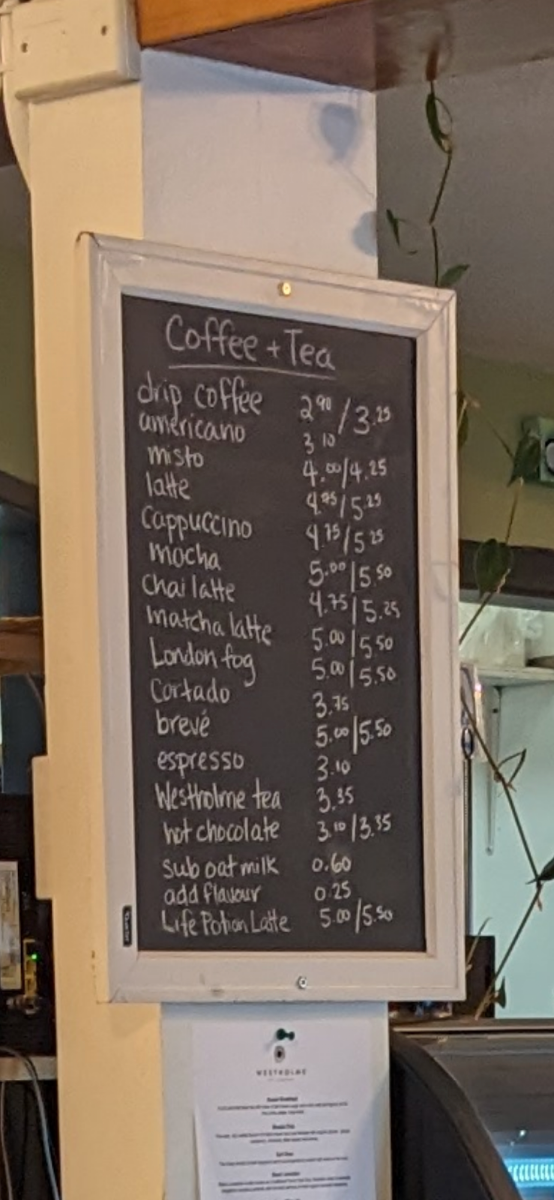 Coffee + Tea
drip coffee 2.90/3.25
americano 3.10
misto 4.00/4.25
latte 4.75/5.25
Cappuccino 4.75/5.25
mocha 5.00/5.50
Chai latte 4.75/5.25
Matcha latte 5.00/5.50
London fog 5.00/5.50
Cortado 3.75
brevé 5.00/5.50
espresso 3.10
Westholme tea 3.35
hot chocolate 3.10/3.35
sub oat milk 0.60
add flavour 0.25
Life Potion Latte 5.00/5.50
WESTHOLME